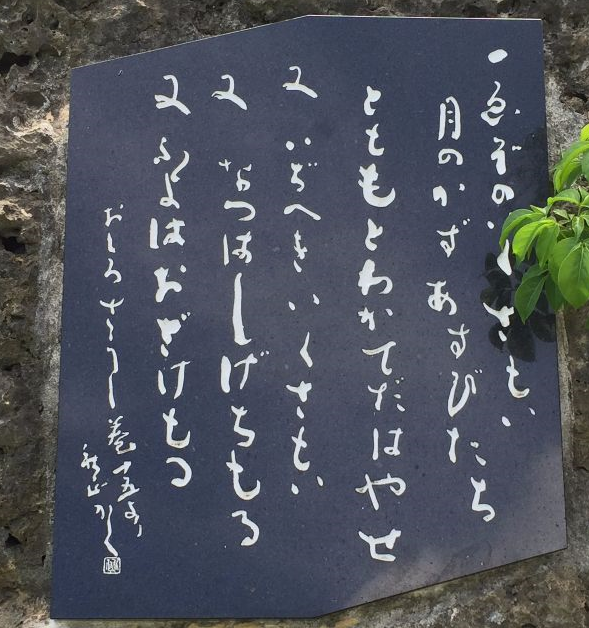 一 ゑぞのいくさもい
月のかず あすびたち
とももとわかてだはやせ
又 いぢへき いくさもい
又 なつは しげちもる
又 ふよは おざけもる
おもろさうし 巻十五より
かく